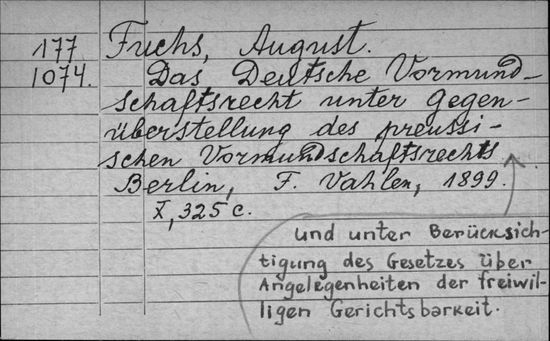 177
1074.
Fuchs, August.
Das Deutsche Vormund-
schaftsrecht unter Gegen-
überstellung des preussi-
schen Vormundschaftsrechts
Berlin, F. Vahlen, 1899.
X, 325 c.
und unter Berücksich-
tigung des Gesetzes über
Angelegenheiten der freiwil-
ligen Gerichtsbarkeit.